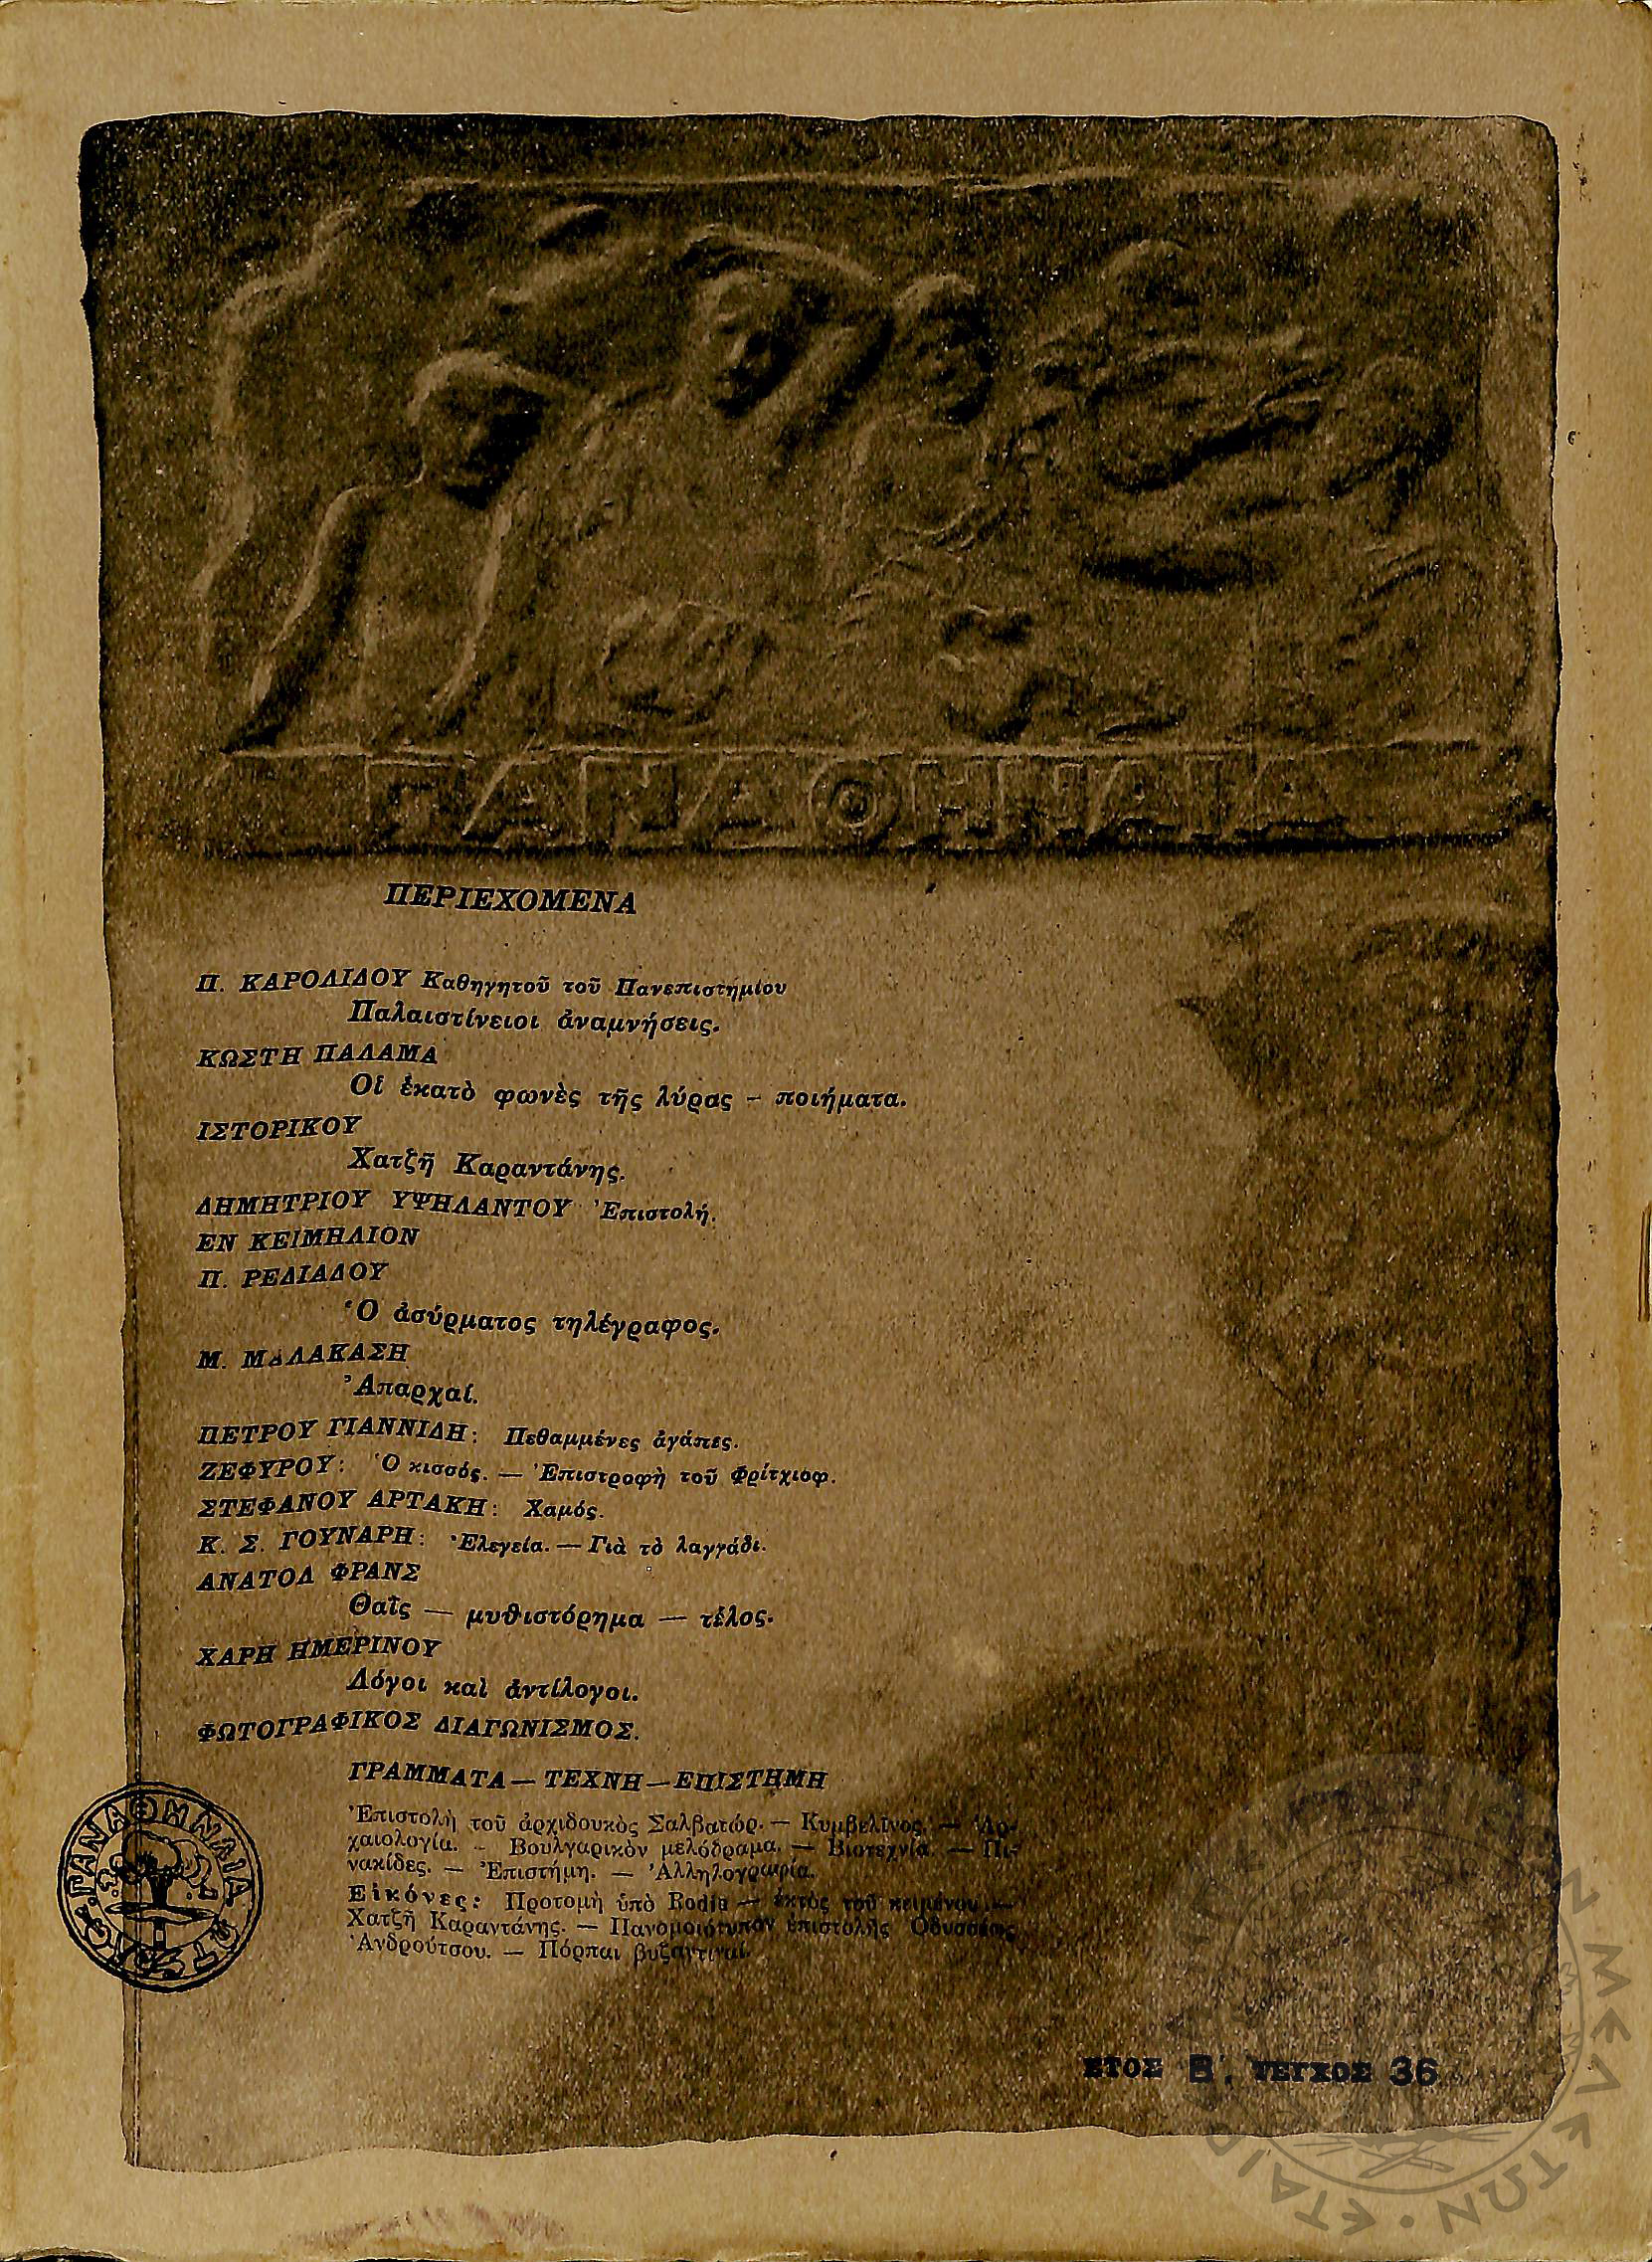 ΠΑΝΑΘΗΝΑΙΑ
ΠΕΡΙΕΧΟΜΕΝΑ
Π. ΚΑΡΟΛΙΔΟΥ Καθηγητοῦ τοῦ Πανεπιστημίου
Παλαιστίνειοι ἀναμνήσεις.
ΚΩΣΤΗ ΠΑΛΑΜΑ
Οἱ ἑκατὸ φωνὲς τῆς λύρας - ποιήματα.
ΙΣΤΟΡΙΚΟΥ
Χατζῆ Καραντάνης.
ΔΗΜΗΤΡΙΟΥ ΥΨΗΛΑΝΤΟΥ Ἐπιστολή.
ΕΝ ΚΕΙΜΗΛΙΟΝ
Π. ΡΕΔΙΑΔΟΥ
Ὁ ἀσύρματος τηλέγραφος.
Μ. ΜΑΛΑΚΑΣΗ
Ἀπαρχαί.
ΠΕΤΡΟΥ ΓΙΑΝΝΙΔΗ: Πεθαμμένες ἀγάπες.
ΖΕΦΥΡΟΥ: Ὁ κισσός. — Ἐπιστροφὴ τοῦ Φρίτχιοφ.
ΣΤΕΦΑΝΟΥ ΑΡΤΑΚΗ: Χαμός.
Κ. Σ. ΓΟΥΝΑΡΗ: Ἐλεγεία. — Γιὰ τὸ λαγγάδι.
ΑΝΑΤΟΛ ΦΡΑΝΣ
Θαῒς — μυθιστόρημα — τέλος.
ΧΑΡΗ ΗΜΕΡΙΝΟΥ
Λόγοι καὶ ἀντίλογοι.
ΦΩΤΟΓΡΑΦΙΚΟΣ ΔΙΑΓΩΝΙΣΜΟΣ.
ΓΡΑΜΜΑΤΑ — ΤΕΧΝΗ — ΕΠΙΣΤΗΜΗ
Ἐπιστολὴ τοῦ ἀρχιδουκὸς Σαλβατώρ. — Κυμβελῖνος. — Ἀρ-
χαιολογία. - Βουλγαρικὸν μελόδραμα. — Βιοτεχνία. — Πι-
νακίδες. — Ἐπιστήμη. — Ἀλληλογραφία.
Εἰκόνες: Προτομὴ ὑπὸ Rodin — ἐκτὸς τοῦ κειμένου —
Χατζῆ Καραντάνης. — Πανομοιότυπον ἐπιστολῆς Ὀδυσσέως
Ἀνδρούτσου. — Πόρπαι βυζαντιναί.
ΠΑΝΑΘΗΝΑΙΑ
ΕΤΟΣ Β΄. ΤΕΥΧΟΣ 36